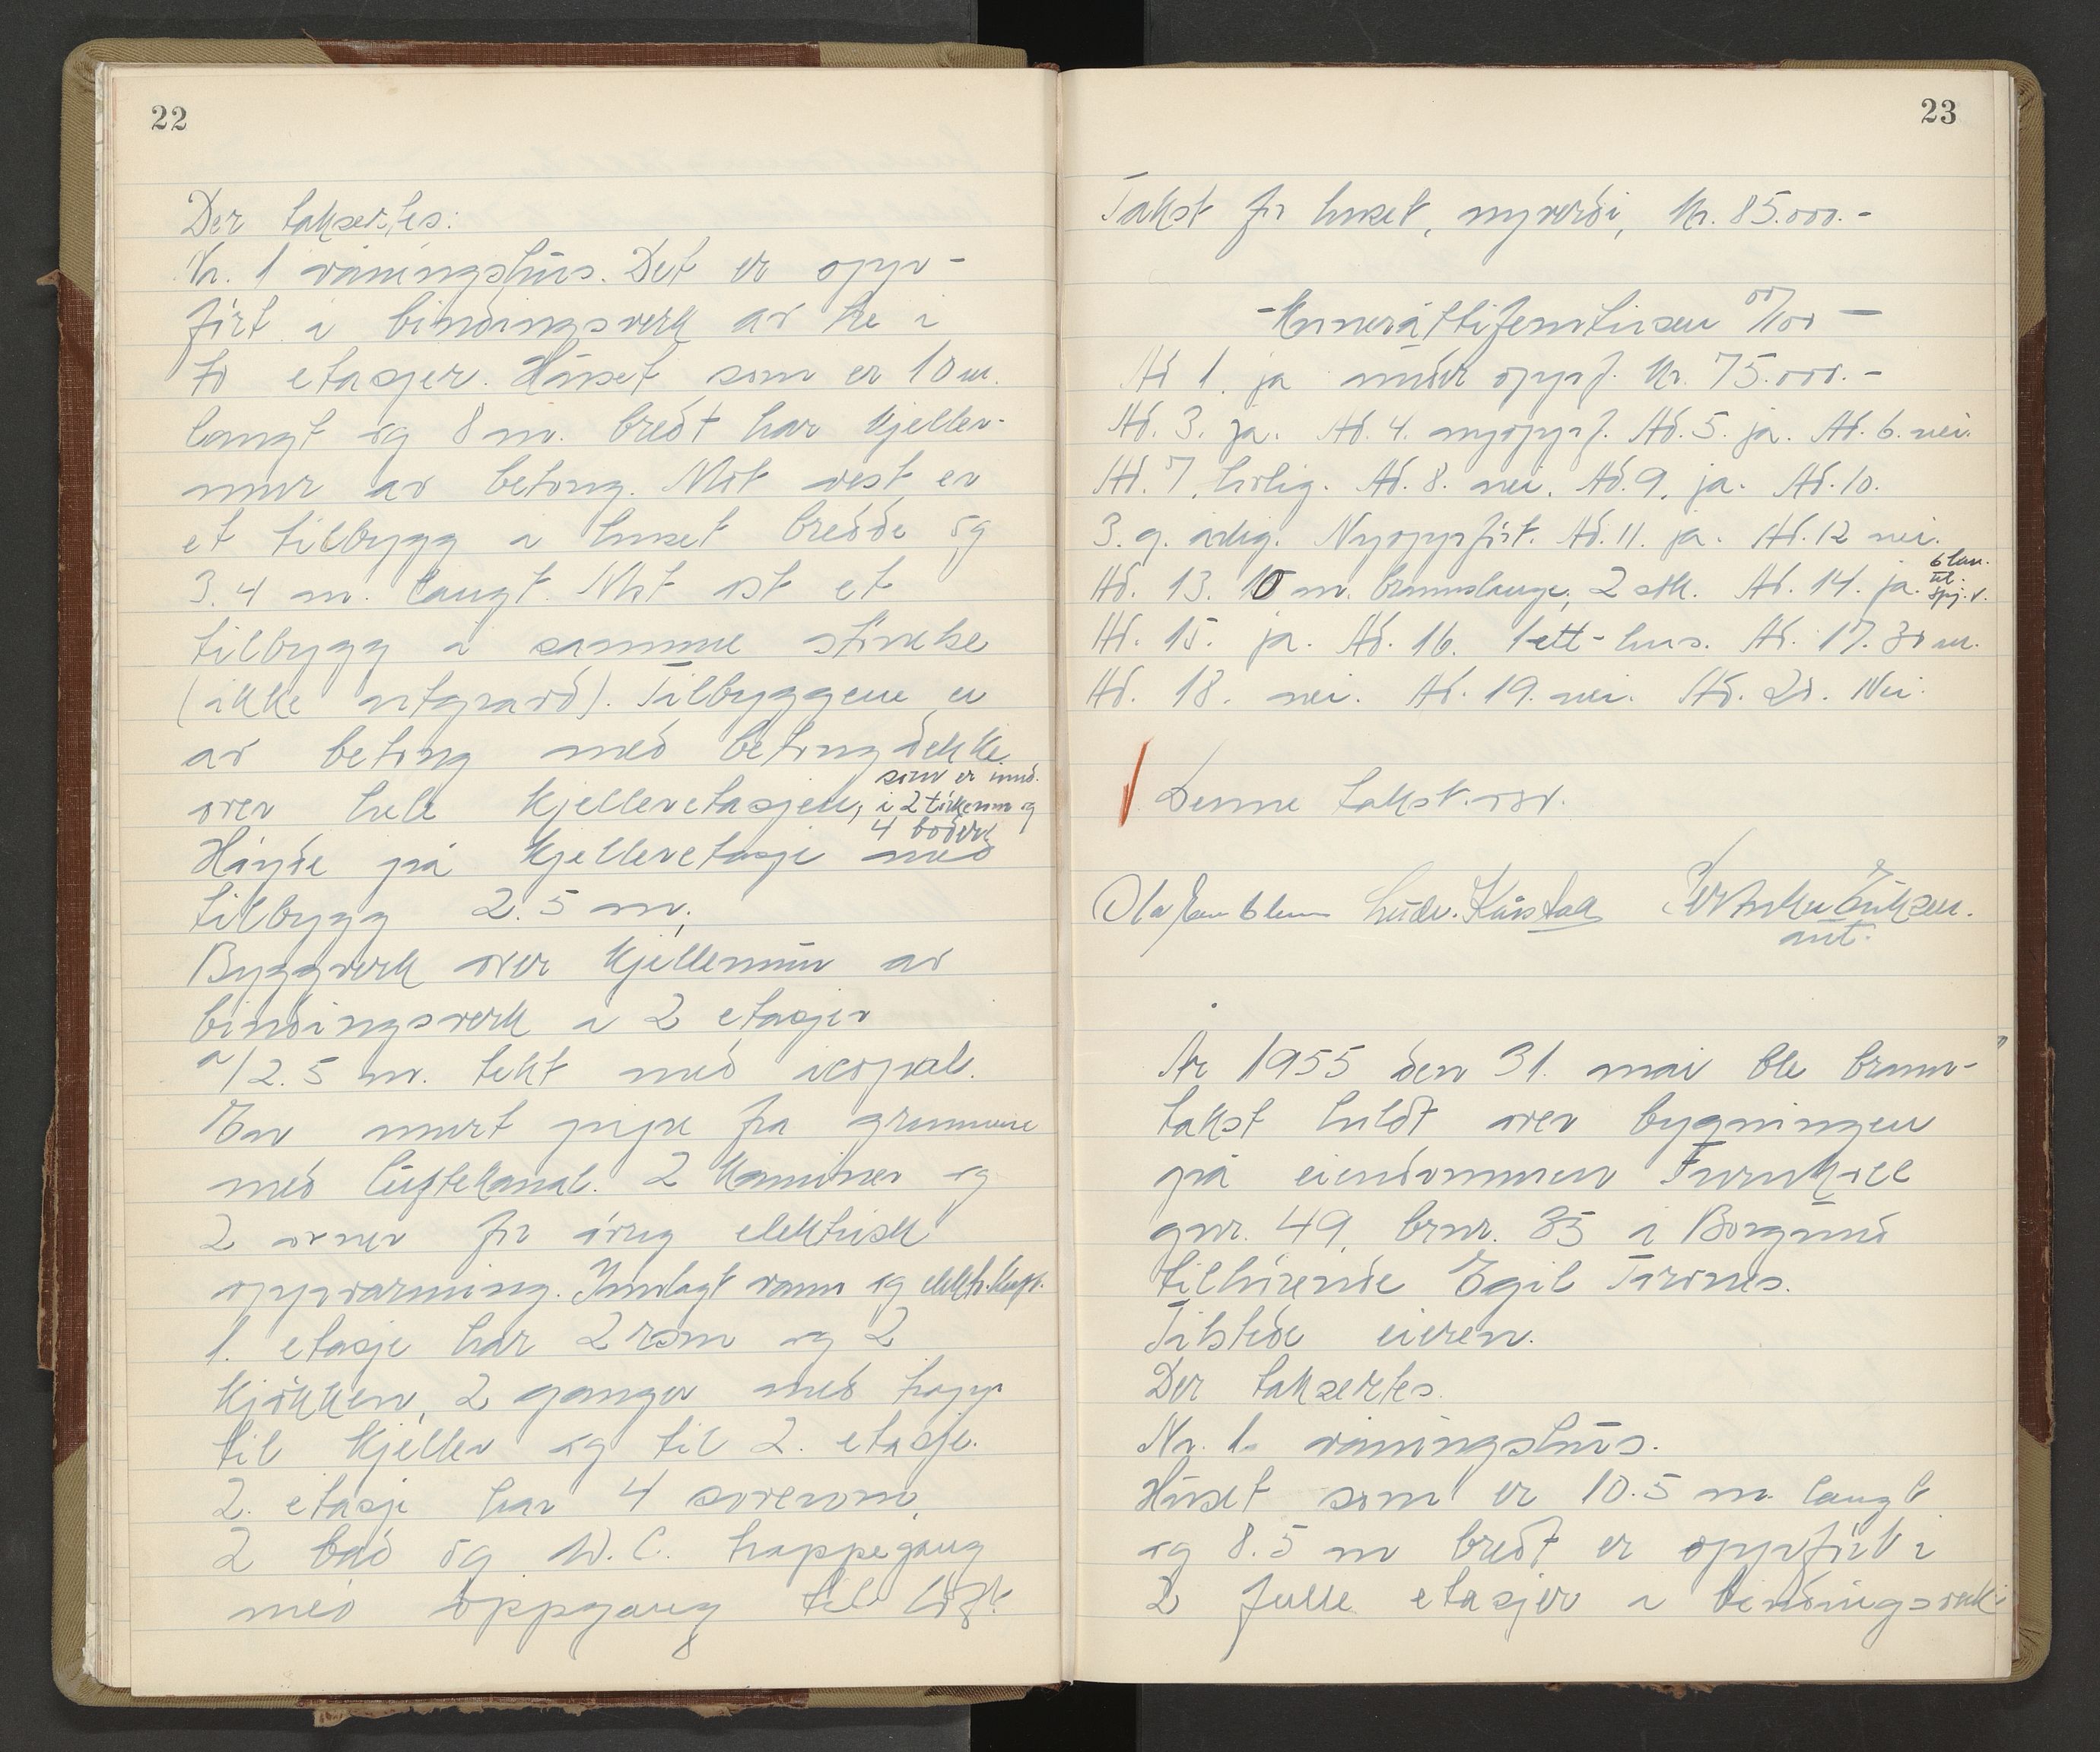 22
Der taksertes:
Nr. 1 våningshus. Det er opp-
ført i bindingsverk av tre i
to etasjer. Huset som er 10 m.
langt og 8 m. bredt har kjeller-
mur av betong. Mot vest er
et tilbygg i huset bredde og
3.4 m. langt. Mot øst et
tilbygg i samme størrelse
(ikke utgravd). Tilbyggene er
av betong med betongdekke
over hele kjelleretasjen, som er innd.
i 2 tørkerum og
4 boder
Høyde på kjelleretasje med
tilbygg 2.5 m.
Byggverk over kjellermur av
bindingsverk i 2 etasjer
a/2.5 m. tekt med icopal.
En murt pipe fra grunnmur
med luftekanal. 2 kaminer og
2 ovner for øvrig elektrisk
oppvarming. Innlagt vann og elektr. kraft.
1. etasje har 2 rom og 2
kjøkken, 2 ganger med trapp
til kjeller og til 2. etasje.
2. etasje har 4 soverom,
2 bad og W.C. trappegang
med oppgang til loft
23
Takst for huset, nyverdi, kr. 85.000.-
- Kroneråttifemtusen 00/100 -
Ad 1. ja under oppf. kr. 75.000.-
Ad. 3. ja. Ad. 4. nyoppf. Ad. 5. ja. Ad. 6. nei.
Ad. 7. bolig. Ad. 8. nei. Ad. 9. ja. Ad. 10.
3. g. årlig. Nyoppført. Ad. 11. ja. Ad. 12 nei.
Ad. 13. 10 m. brannslange, 2 stk. Ad. 14. ja. 6 km.
til
spj. v.
Ad. 15. ja. Ad. 16. 1 ett-hus. Ad. 17. 30 m.
Ad. 18. nei. Ad. 19. nei. Ad. 20. Nei.
Denne takst. osv.
Ola
År 1955 den 31. mai ble brann-
takst holdt over bygningen
på eiendommen Furukoll
gnr. 49, brnr. 35 i Borgund
tilhørende Egil Torvnes.
Tilstede eieren.
Der taksertes.
Nr. 1. våningshus.
Huset som er 10.5 m. langt
og 8.5 m bredt er oppført i
2 fulle etasjer i bindingsverk